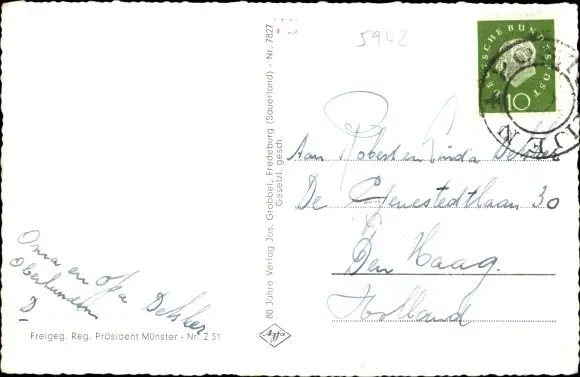 5942
DEUTSCHE BUNDESPOST
10
80 Jahre Verlag Jos. Grobbel, Fredeburg (Sauerland) - Nr. 7827
Gesetzl. gesch.
Aan Robert en Linda Detsler
De Genestedtlaan 30
Den Haag.
Holland
Oma en opa Detsler
Oberhunden
D
Freigeg. Reg. Präsident Münster - Nr. Z 51